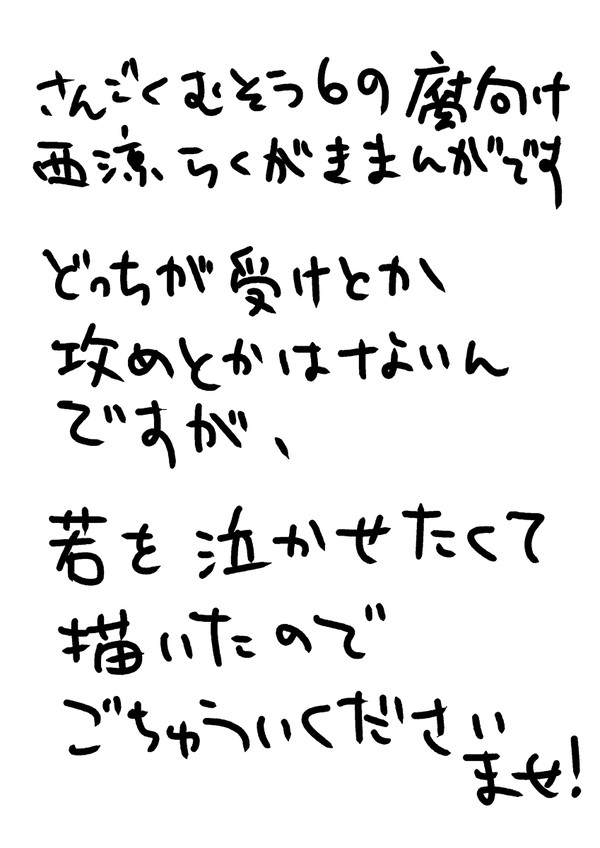 さんごくむそう6の腐向け
西涼らくがきまんがです
どっちが受けとか
攻めとかはないん
ですが、
若を泣かせたくて
描いたので
ごちゅういください
ませ!